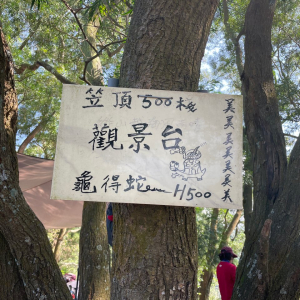 笠頂500檨
觀景台
龜得蛇 H500
美美美美美美美